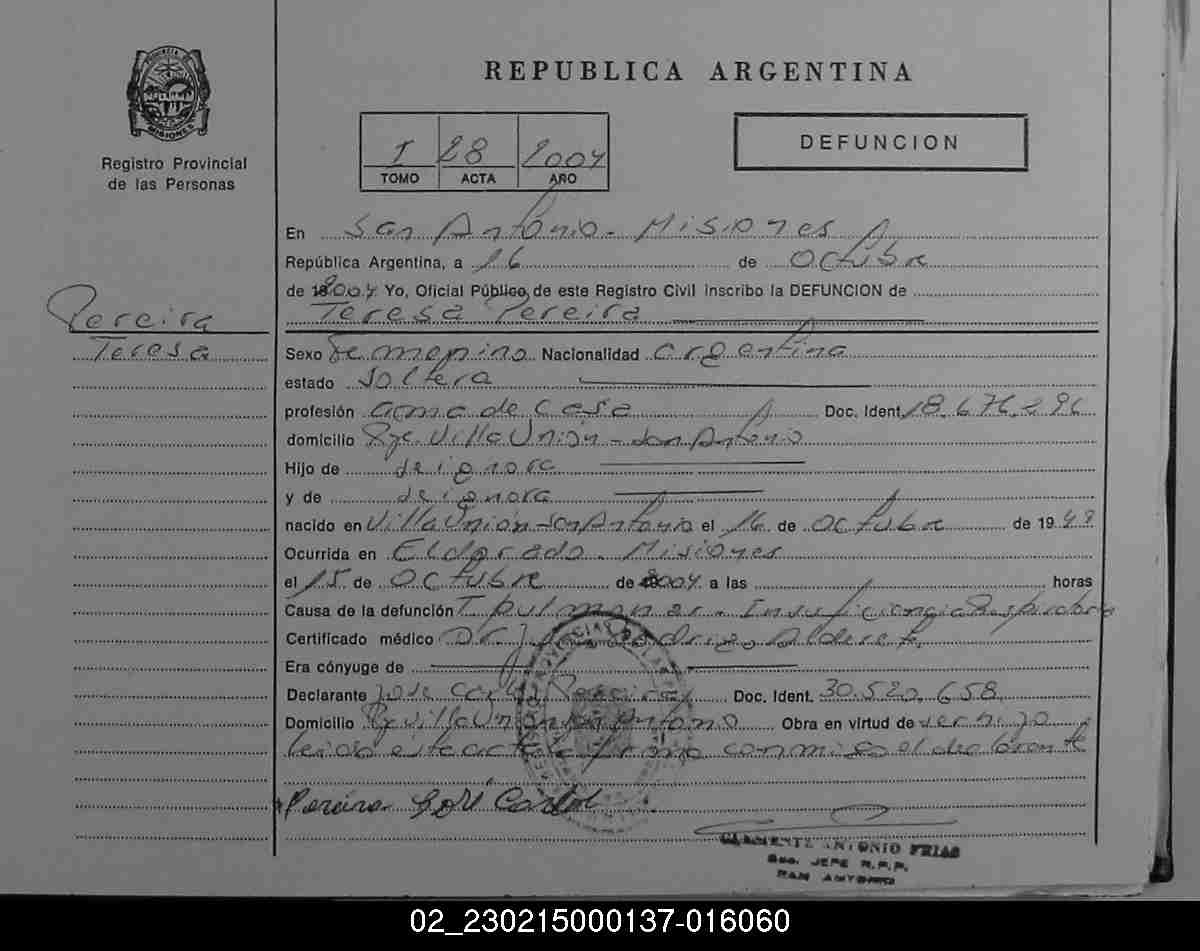 REPUBLICA ARGENTINA
PROVINCIA DE
MISIONES
Registro Provincial
de las Personas
I 28 2004
TOMO ACTA AÑO
DEFUNCION
En San Antonio - Misiones
República Argentina, a 16 de Octubre
de 2004 Yo, Oficial Público de este Registro Civil inscribo la DEFUNCION de
Teresa Pereira
Pereira
Teresa
Sexo Femenino Nacionalidad argentina
estado Soltera
profesión ama de casa Doc. Ident. 18.676.296
domicilio Pje. Villa Unión - San Antonio
Hijo de se ignora
y de se ignora
nacido en Villa Unión - San Antonio el 16 de Octubre de 19
Ocurrida en Eldorado - Misiones
el 15 de Octubre de 2004 a las horas
Causa de la defunción T pulmonar - Insuficiencia Respiratoria
Certificado médico Dr.
Era cónyuge de
Declarante José Carlos Pereira Doc. Ident. 30.520.658
Domicilio Pje Villa Unión San Antonio Obra en virtud de ser hijo
leida este acta la firma conmigo el declarante
Pereira José Carlos
CLEMENTE ANTONIO FRIAS
JEFE R.P.P.
SAN ANTONIO
02_230215000137-016060